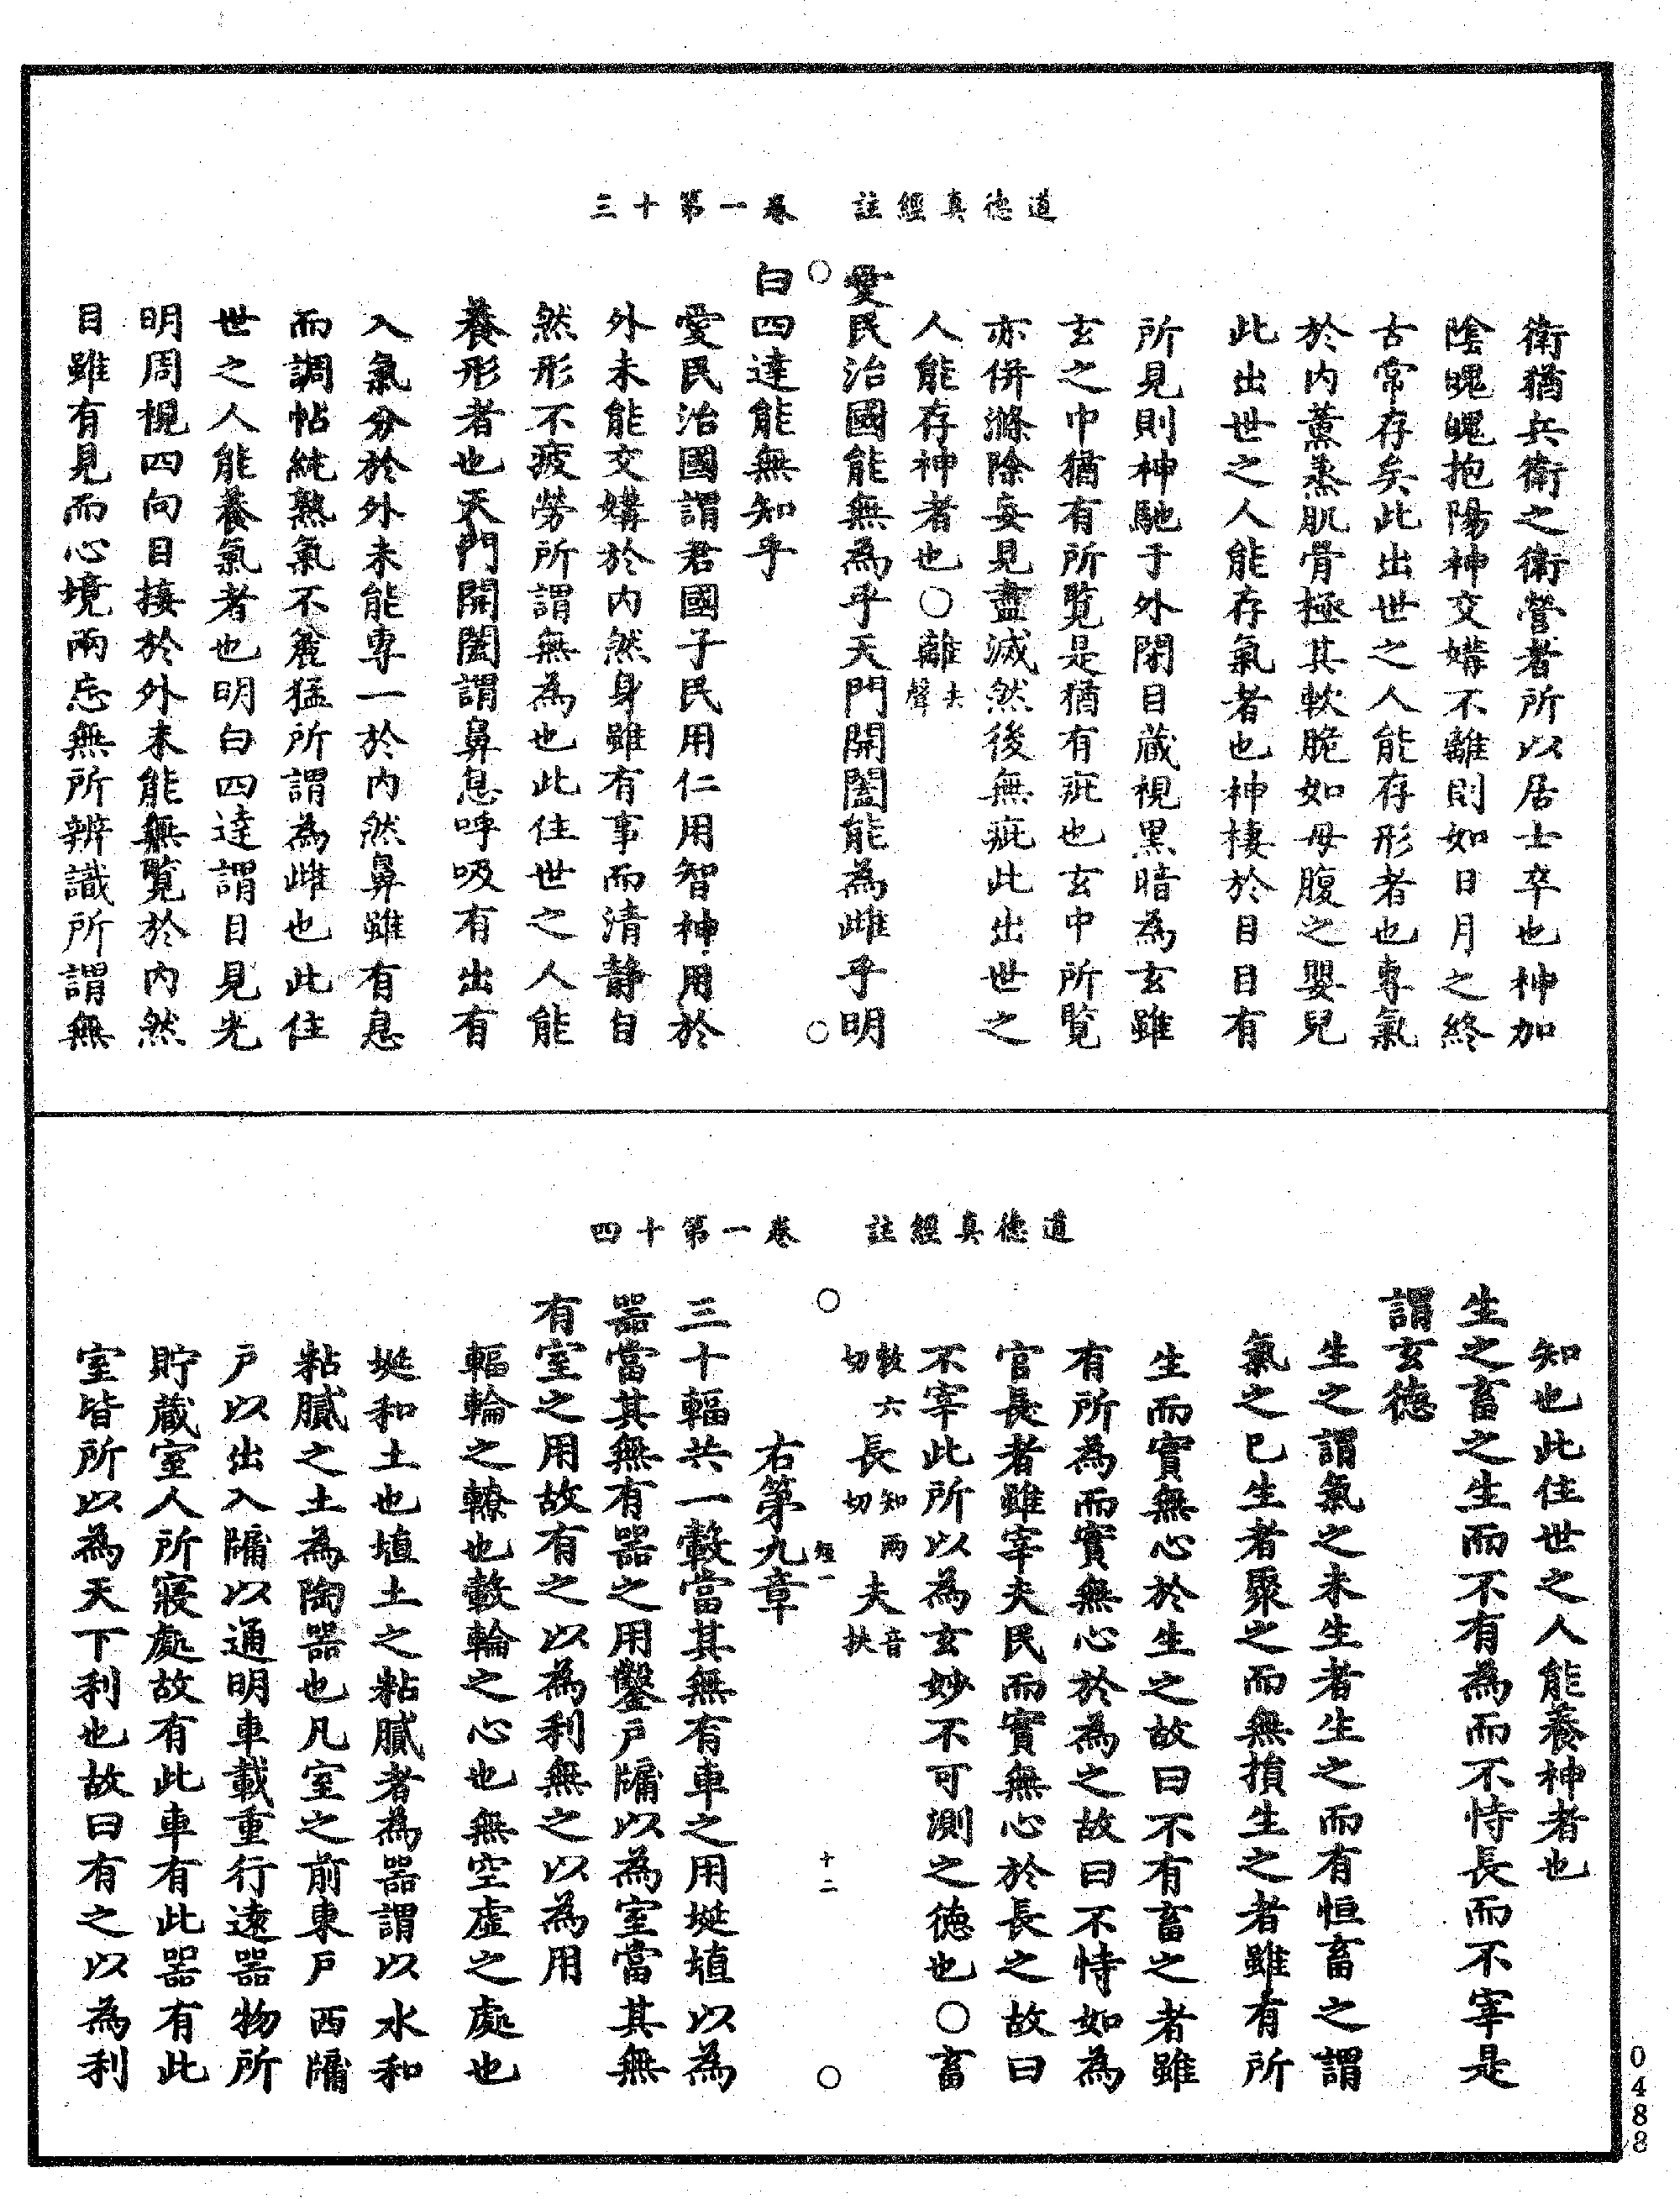 道德真經註　卷一第十三
衛猶兵衛之衛營者所以居士卒也神加
陰魄魄抱陽神交媾不離則如日月之終
古常存矣此出世之人能存形者也專氣
於内薫蒸肌骨極其軟脆如母腹之嬰兒
此出世之人能存氣者也神棲於目目有
所見則神馳于外閉目蔵視黒暗為玄雖
玄之中猶有所覧是猶有疵也玄中所覧
亦併滌除妄見盡滅然後無疵此出世之
人能存神者也○離去聲
愛民治國能無為乎天門開闔能為雌乎明
白四達能無知乎
愛民治國謂君國子民用仁用智神用於
外未能交媾於内然身雖有事而清静自
然形不疲勞所謂無為也此住世之人能
養形者也天門開闔謂鼻息呼吸有出有
入氣分於外未能專一於内然鼻雖有息
而調帖純熟氣不麄猛所謂為雌也此住
世之人能養氣者也明白四達謂目見光
明周視四向目接於外未能無覧於内然
目雖有見而心境兩忘無所辨識所謂無
道德真經註　卷一第十四
知也此住世之人能養神者也
生之畜之生而不有為而不恃長而不宰是
謂玄德
生之謂氣之未生者生之而有恒畜之謂
氣之已生者聚之而無損生之者雖有所
生而實無心於生之故曰不有畜之者雖
有所為而實無心於為之故曰不恃如為
官長者雖宰夫民而實無心於長之故曰
不宰此所以為玄妙不可測之德也○畜
敕六切長知兩切夫音扶
經一　十二
右第九章
三十輻共一轂當其無有車之用埏埴以為
器當其無有器之用鑿戶牖以為室當其無
有室之用故有之以為利無之以為用
輻輪之轑也轂輪之心也無空虛之處也
埏和土也埴土之粘膩者為器謂以水和
粘膩之土為陶器也凡室之前東戶西牖
戶以出入牖以通明車載重行遠器物所
貯蔵室人所寢處故有此車有此器有此
室皆所以為天下利也故曰有之以為利
0488